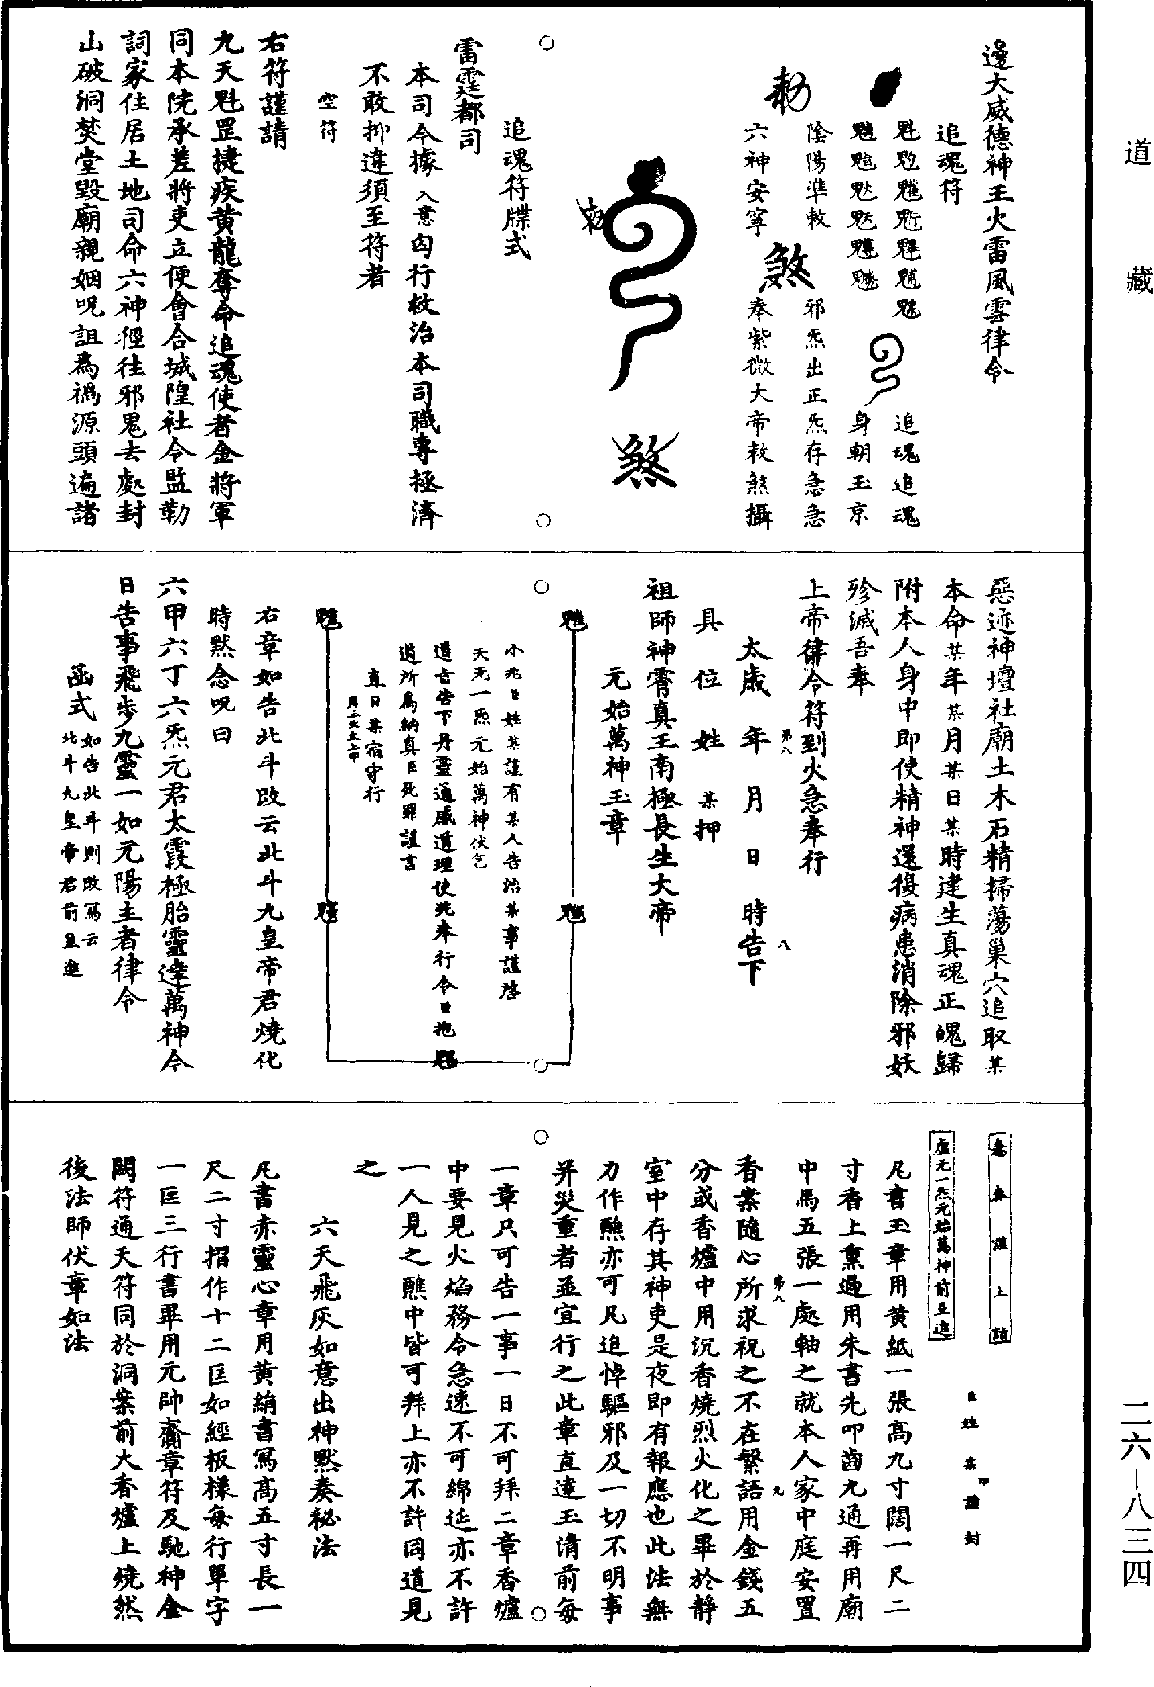 道藏
二六—八三四
邊大威德神王火雷風雲律令
追魂符
追魂追魂
身朝玉京
陰陽準敕
邪炁出正炁存急急
六神安寧
奉紫微大帝敕煞攝
敕
煞
煞
追魂符牒式
雷霆都司
本司今據入意囟行救治本司職專拯濟
不敢抑違須至符者
空符
右符謹請
九天魁罡捷疾黃龍奪命追魂使者金將軍
同本院承差將吏立便會合城隍社令監勒
詞家住居土地司命六神徑往邪鬼去處封
山破洞焚堂毀廟親姻呪詛為禍源頭遍諸
惡迹神壇社廟土木石精掃蕩巢穴追取某
本命某年某月某日某時建生真魂正魄歸
附本人身中即使精神還復病患消除邪妖
殄滅吾奉
上帝律令符到火急奉行
太歲年月日時告下
具位姓某押
祖師神霄真王南極長生大帝
元始萬神玉章
小兆臣姓某謹有某人告治某事謹啓
天元一炁元始萬神伏乞
直日某宿守行
右章如告北斗改云北斗九皇帝君燒化
時默念呪曰
六甲六丁六炁元君太霞極胎靈達萬神今
日告事飛步九靈一如元陽主者律令
函式如告北斗則改寫云
北斗九皇帝君前呈進
虛元一炁元始萬神前呈進
臣姓某謹封
凡書玉章用黃紙一張高九寸闊一尺二
寸香上熏過用朱書先叩齒九通再用廟
中馬五張一處軸之就本人家中庭安置
香案隨心所求祝之不在繁語用金錢五
分或香爐中用沉香燒烈火化之畢於靜
室中存其神吏是夜即有報應也此法無
力作醮亦可凡追悼驅邪及一切不明事
并災重者並宜行之此章直達玉清前每
一章只可告一事一日不可拜二章香爐
中要見火焰務令急速不可綿延亦不許
一人見之醮中皆可拜上亦不許同道見
之
六天飛灰如意出神默奏秘法
凡書赤靈心章用黃絹書寫高五寸長一
尺二寸摺作十二匡如經板樣每行單字
一匡三行書畢用元帥齋章符及馳神金
闕符通天符同於洞案前大香爐上燒然
後法師伏章如法